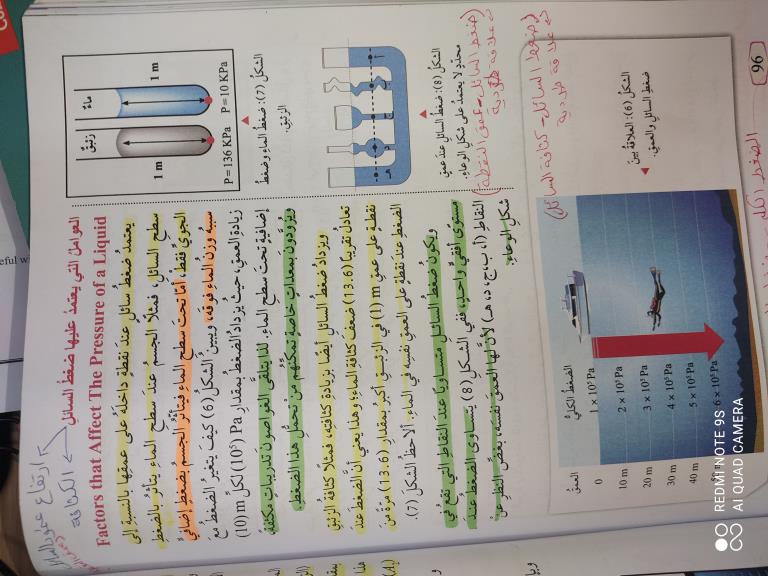 96
العوامل التي يعتمد عليها ضغط السائل
Factors that Affect The Pressure of a Liquid
يعتمدُ ضغطُ سائلٍ عندَ نقطةٍ داخلَهُ على عمقِها بالنسبةِ إلى
سطحِ السائلِ، فمثلًا الجسمُ عندَ سطحِ الماءِ يتأثرُ بالضغطِ
الجويِّ فقط، أمّا تحتَ سطحِ الماءِ فيتأثرُ الجسمُ بضغطٍ إضافيٍّ
سببُهُ وزنُ الماءِ فوقَهُ، ويبيّنُ الشكلُ (6) كيفَ يتغيرُ الضغطُ معَ
زيادةِ العمقِ، حيثُ يزدادُ الضغطُ بمقدارِ Pa (10⁵) لكلِّ m (10)
إضافيةٍ تحتَ سطحِ الماءِ. لذا يتلقى الغواصونَ تدريباتٍ مكثفةً
ويزوَّدونَ بمعداتٍ خاصةٍ تمكّنُهُم مِنْ تحمُّلِ هذا الضغطِ.
ويزدادُ ضغطُ السائلِ أيضًا بزيادةِ كثافتِهِ، فمثلًا كثافةُ الزئبقِ
تعادلُ تقريبًا (13.6) ضعفَ كثافةِ الماءِ؛ وهذا يعني أنَّ الضغطَ عندَ
نقطةٍ على عمقِ (1 m) في الزئبقِ أكبرُ بمقدارِ (13.6) مرةً مِنَ
الضغطِ عندَ نقطةٍ على العمقِ نفسِهِ في الماءِ. ألاحظُ الشكلَ (7).
ويكونُ ضغطُ السائلِ متساويًا عندَ النقاطِ التي تقعُ في
مستوًى أفقيٍّ واحدٍ، ففي الشكلِ (8) يتساوى الضغطُ عندَ
النقاطِ (أ، ب، ج، د، هـ) لأنَّ لها العمقَ نفسَهُ، بغضِّ النظرِ عنْ
شكلِ الوعاءِ.
ماء
زئبق
1 m
1 m
P = 10 KPa
P = 136 KPa
الشكلُ (7): ضغطُ الماءِ وضغطُ
الزئبقِ.
الشكلُ (8): ضغطُ السائلِ عندَ عمقٍ
محددٍ لا يعتمدُ على شكلِ الوعاءِ.
(ضغط السائل - عمق النقطة)
علاقة طردية
(ضغط السائل - كثافة السائل)
علاقة طردية
الشكلُ (6): العلاقةُ بينَ
ضغطِ السائلِ والعمقِ.
العمقُ
الضغطُ الكليُّ
0 1 × 10⁵ Pa
10 m 2 × 10⁵ Pa
20 m 3 × 10⁵ Pa
30 m 4 × 10⁵ Pa
40 m 5 × 10⁵ Pa
6 × 10⁵ Pa
الكثافة
ارتفاع عمود السائل
REDMI NOTE 9S
AI QUAD CAMERA